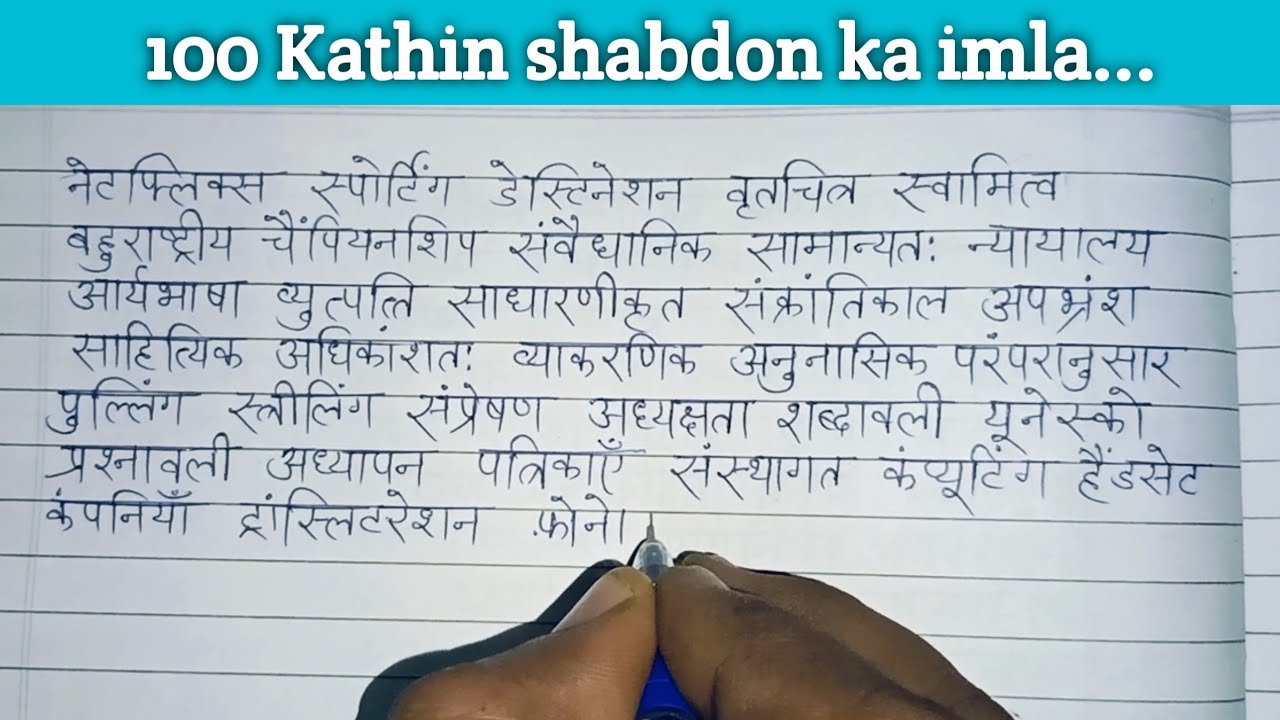 100 Kathin shabdon ka imla...
नेटफ्लिक्स स्पोर्टिंग डेस्टिनेशन वृतचित्र स्वामित्व
बहुराष्ट्रीय चैंपियनशिप संवैधानिक सामान्यत: न्यायालय
आर्यभाषा व्युत्पत्ति साधारणीकृत संक्रांतिकाल अपभ्रंश
साहित्यिक अधिकांशत: व्याकरणिक अनुनासिक परंपरानुसार
पुल्लिंग स्त्रीलिंग संप्रेषण अध्यक्षता शब्दावली यूनेस्को
प्रश्नावली अध्यापन पत्रिकाएँ संस्थागत कंप्यूटिंग हैंडसेट
कंपनियाँ ट्रांस्लिटरेशन फ़ोने